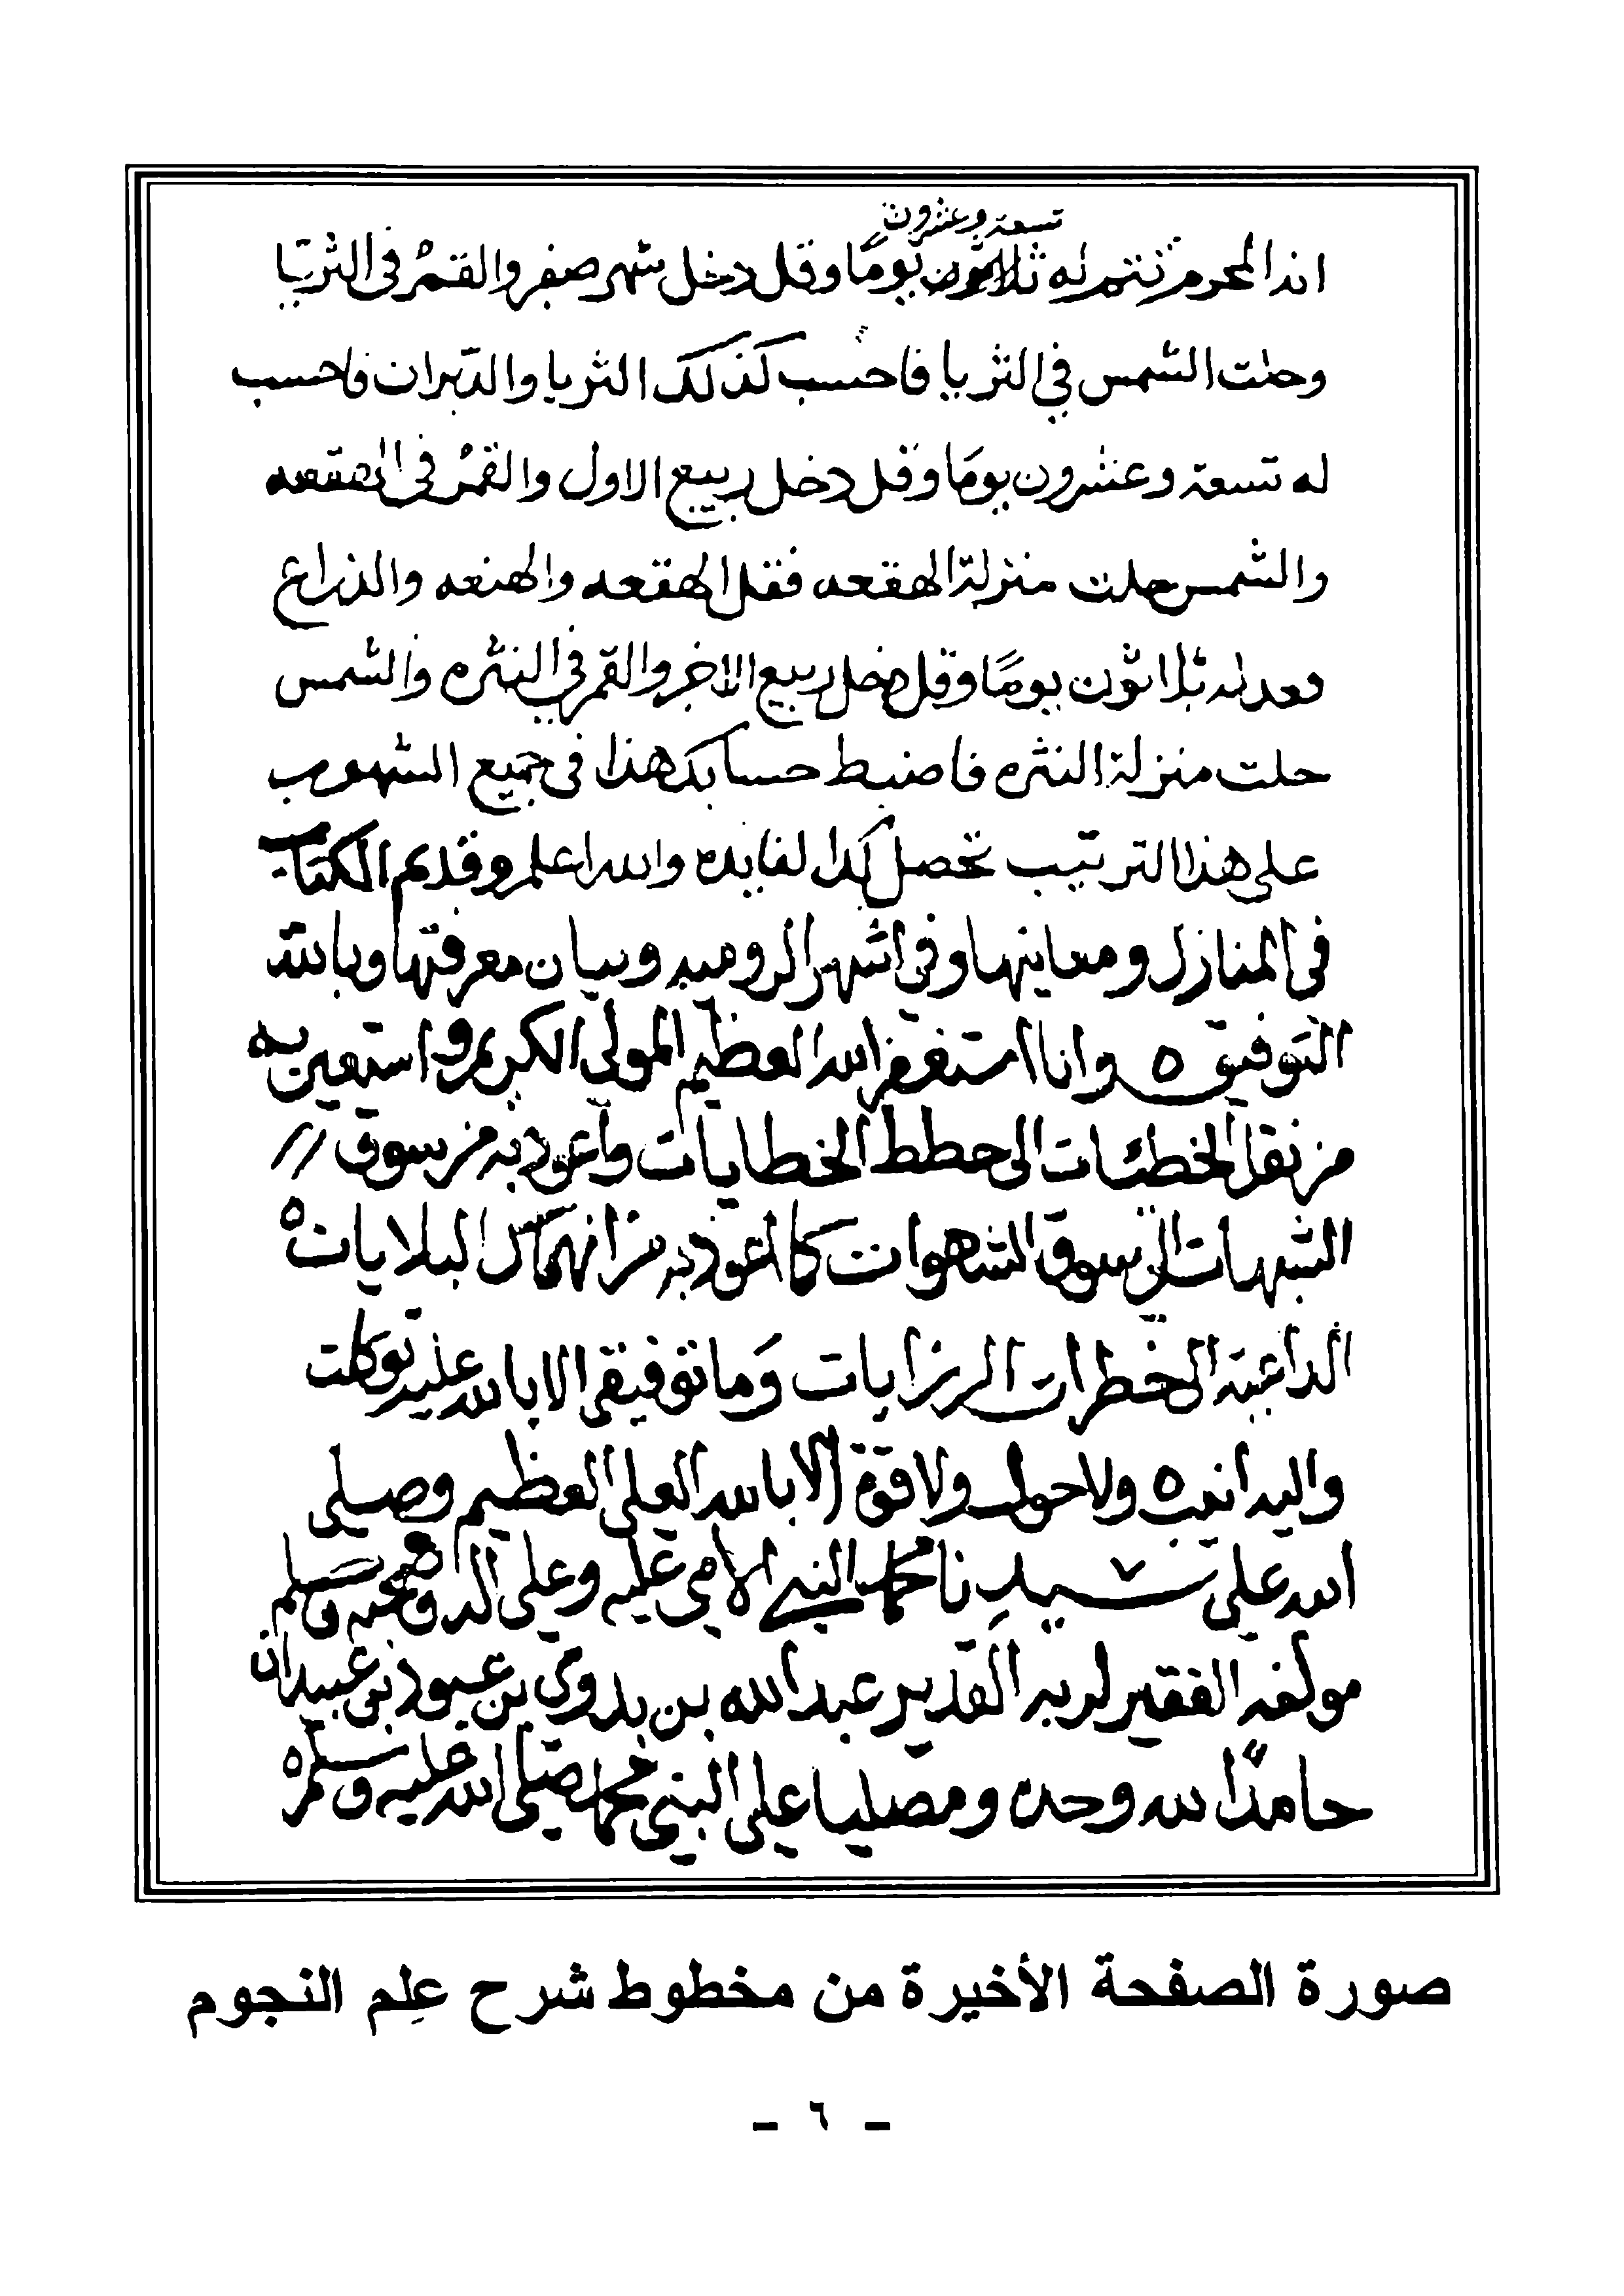 تسعة وعشرون
ان المحرم تتم له ثلاثون يومًا وقل دخل شهر صفر والقمر في الثريا
وحلت الشمس في الثريا فاحسب كذلك الثريا والدبران فاحسب
له تسعة وعشرون يومًا وقل دخل ربيع الاول والقمر في الهقعه
والشمس حلت منزلة الهقعه فقل الهقعه والهنعه والذراع
فعد له ثلاثون يومًا وقل دخل ربيع الاخر والقمر في النثره والشمس
حلت منزلة النثره فاضبط حسابك هذا في جميع الشهور
على هذا الترتيب تحصل لك الفايده والله اعلم وقد تم الكتاب
في المنازل ومعاينها وفي اشهر الروميه وبيان معرفتها وبالله
التوفيق ه وانا استغفر الله العظيم المولى الكريم واستعين به
من نقل الخطئات الى حطط الخطايات واعوذ به من سوق //
الشبهات الى سوق الشهوات كما اعوذ به من انهماك البلايات ه
الداعية الى خطرات الرزايات وما توفيقي الا بالله عليه توكلت
واليه انيب ه ولا حول ولا قوة الا بالله العلي العظيم وصلى
الله على سيدنا محمد النبي الامي عليه وعلى اله وصحبه وسلم
مولفه الفقير لربه القدير عبد الله بن بدوي بن عبود بن عبيدان
حامدًا لله وحده ومصليا على النبي محمد صلى الله عليه وسلم ه
صورة الصفحة الأخيرة من مخطوط شرح عِلم النجوم
- ٦ -